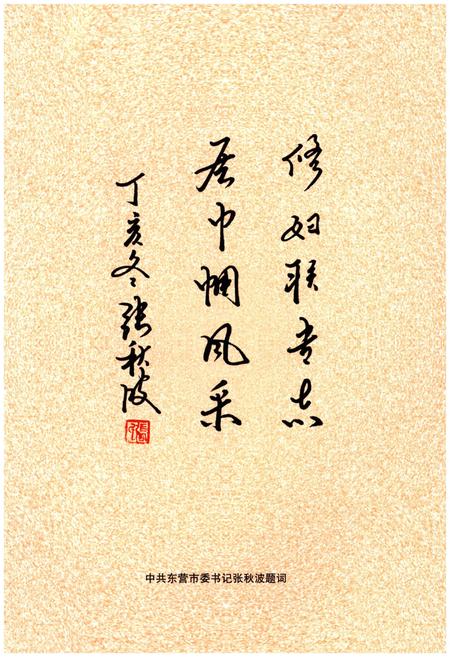 修妇联专志
展巾帼风采
丁亥冬 张秋波
中共东营市委书记张秋波题词